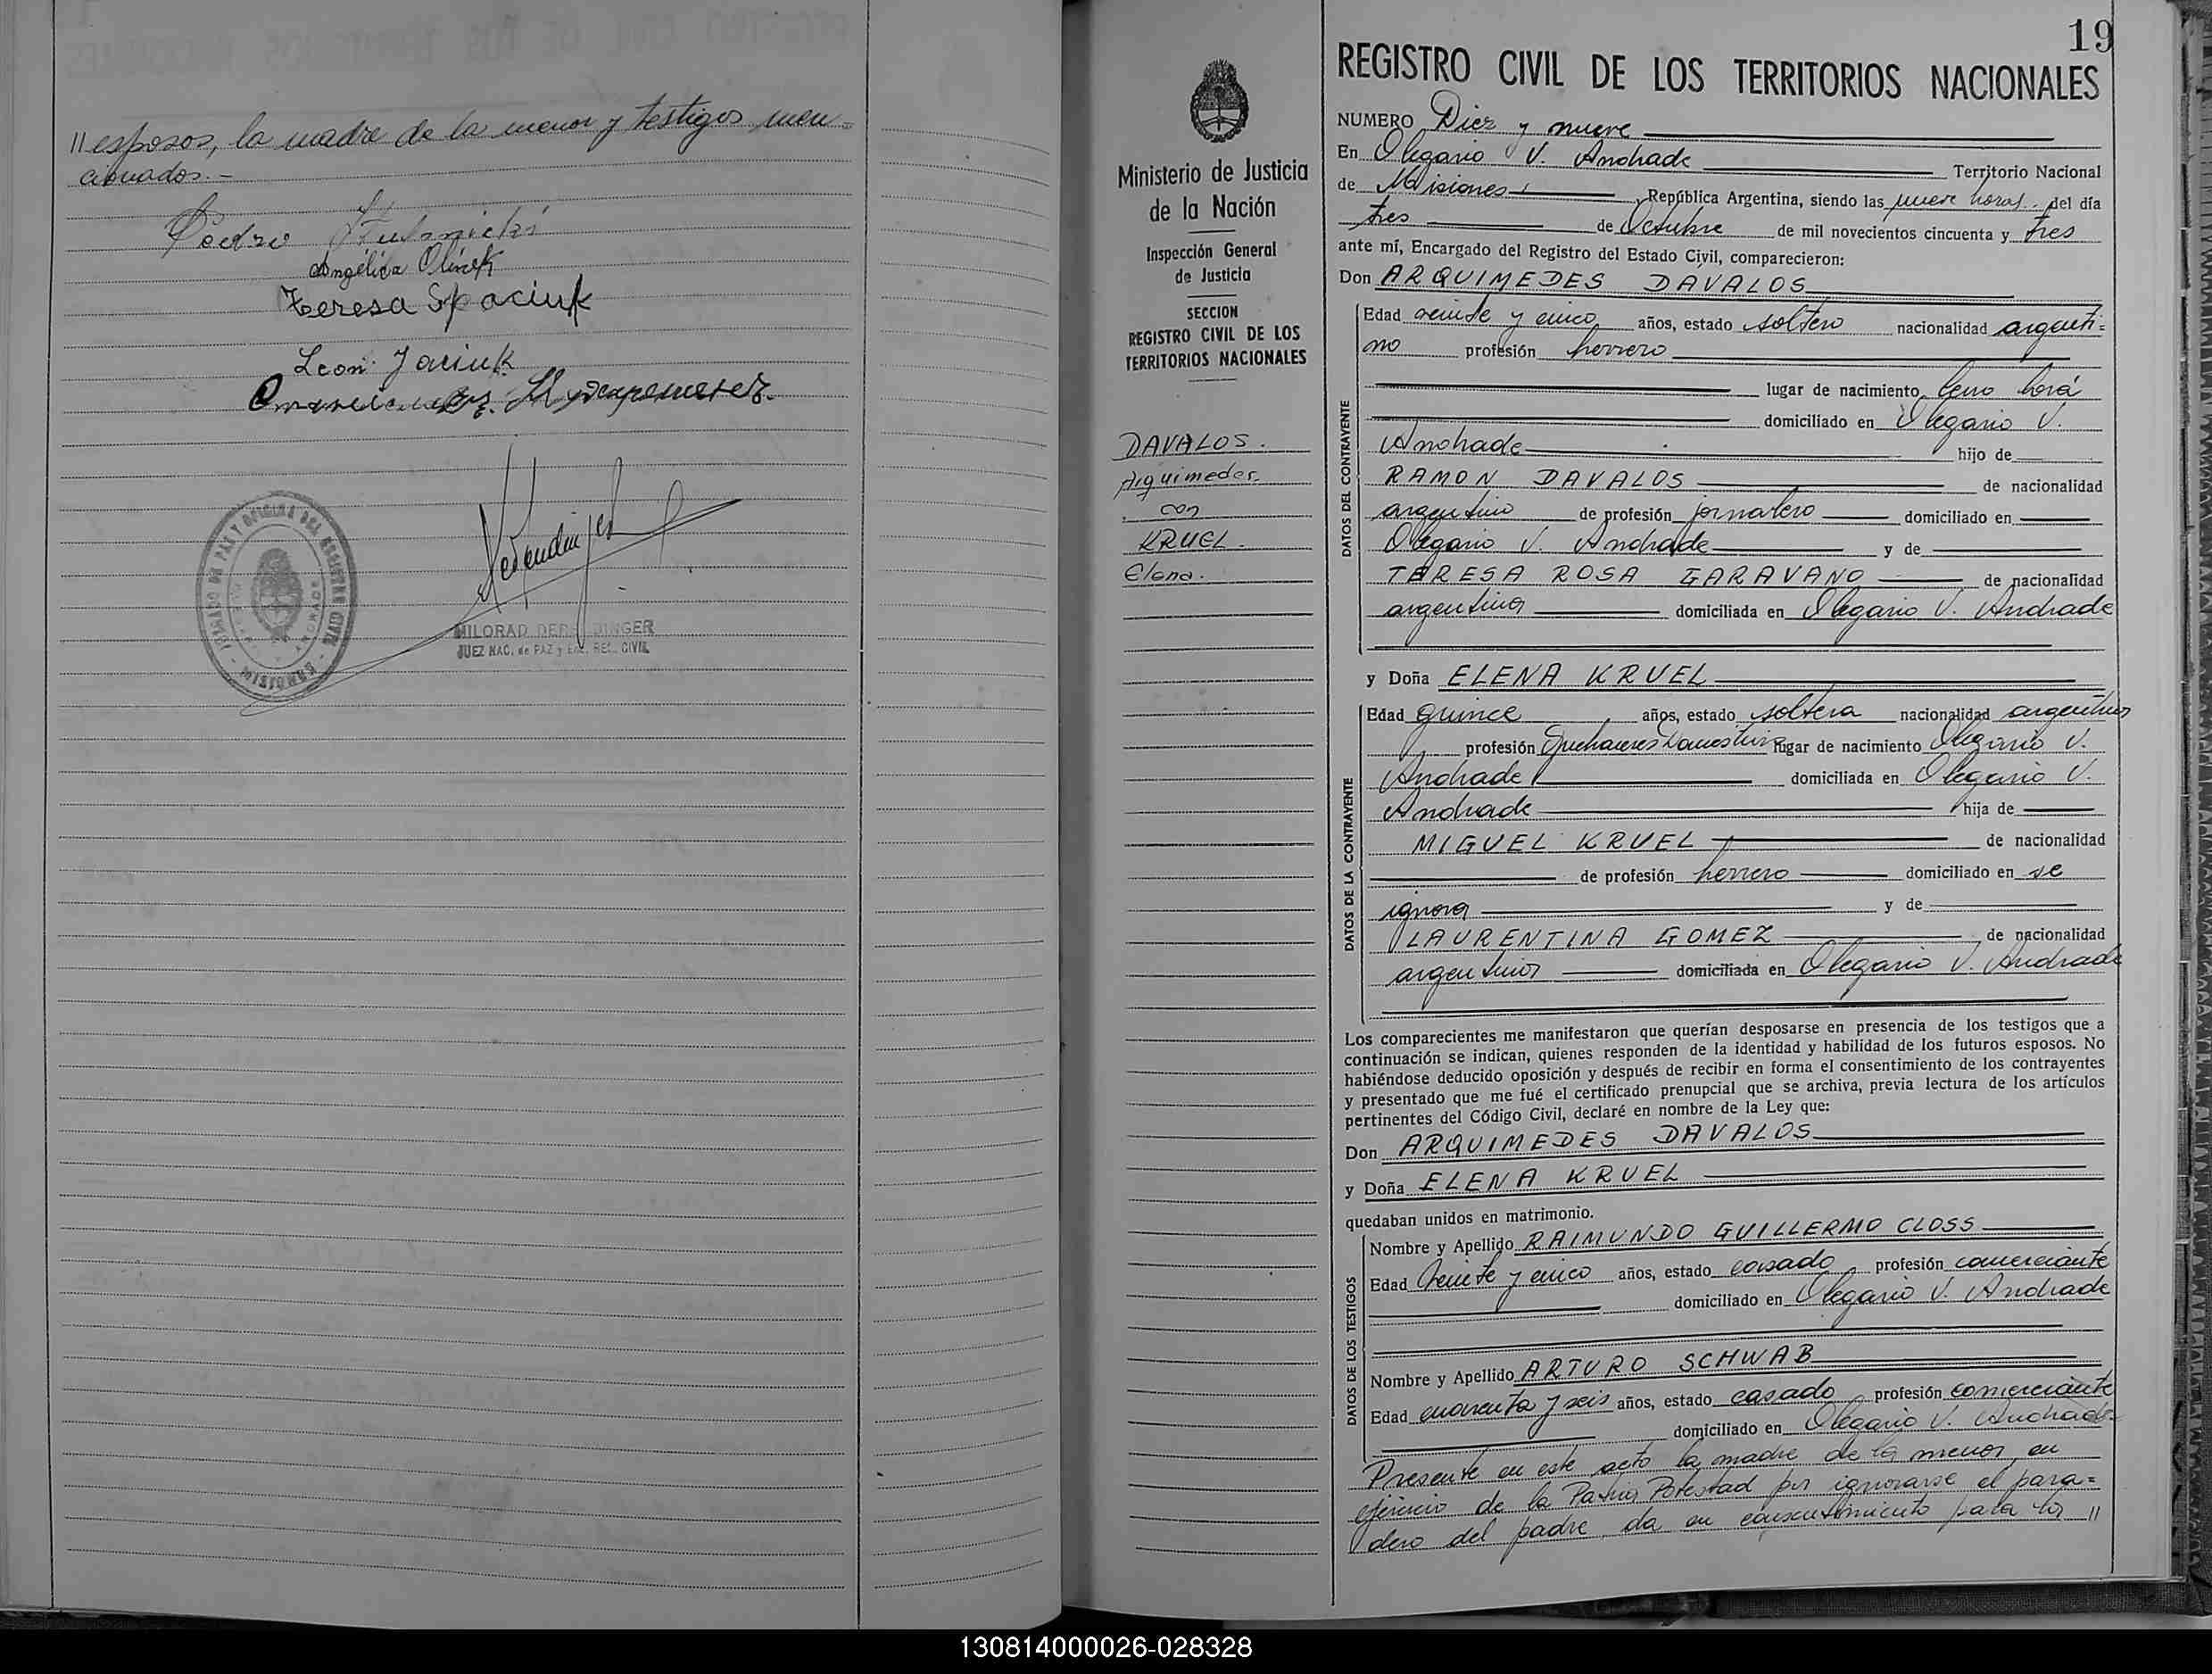 // esposos, la madre de la menor y testigos men=
cionados.-
Pedro
Angélica Olinek
Teresa Spaciuk
Leon Jaciuk
JUZGADO DE PAZ Y OFICINA DEL REGISTRO CIVIL
MISIONES
MILORAD
JUEZ NAC. de PAZ y Enc. REG. CIVIL
19
REGISTRO CIVIL DE LOS TERRITORIOS NACIONALES
Ministerio de Justicia
de la Nación
Inspección General
de Justicia
SECCION
REGISTRO CIVIL DE LOS
TERRITORIOS NACIONALES
DAVALOS.
Arquimedes.
con
KRUEL.
Elena.
NUMERO Diez y nueve
En Olegario V. Andrade Territorio Nacional
de Misiones, República Argentina, siendo las nueve horas. del día
tres de Octubre de mil novecientos cincuenta y tres
ante mí, Encargado del Registro del Estado Civil, comparecieron:
Don ARQUIMEDES DAVALOS
DATOS DEL CONTRAYENTE
Edad veinte y cinco años, estado soltero nacionalidad argenti=
no profesión herrero
lugar de nacimiento
domiciliado en Olegario V.
Andrade hijo de
RAMON DAVALOS de nacionalidad
argentino de profesión jornalero domiciliado en
Olegario V. Andrade y de
TERESA ROSA GARAVANO de nacionalidad
argentina domiciliada en Olegario V. Andrade
y Doña ELENA KRUEL
DATOS DE LA CONTRAYENTE
Edad quince años, estado soltera nacionalidad argentina
profesión Quehaceres Domesticos lugar de nacimiento Olegario V.
Andrade domiciliada en Olegario V.
Andrade hija de
MIGUEL KRUEL de nacionalidad
de profesión herrero domiciliado en se
ignora y de
LAURENTINA GOMEZ de nacionalidad
argentina domiciliada en Olegario V. Andrade
Los comparecientes me manifestaron que querían desposarse en presencia de los testigos que a
continuación se indican, quienes responden de la identidad y habilidad de los futuros esposos. No
habiéndose deducido oposición y después de recibir en forma el consentimiento de los contrayentes
y presentado que me fué el certificado prenupcial que se archiva, previa lectura de los artículos
pertinentes del Código Civil, declaré en nombre de la Ley que:
Don ARQUIMEDES DAVALOS
y Doña ELENA KRUEL
quedaban unidos en matrimonio.
DATOS DE LOS TESTIGOS
Nombre y Apellido RAIMUNDO GUILLERMO CLOSS
Edad Veinte y cinco años, estado casado profesión comerciante
domiciliado en Olegario V. Andrade
Nombre y Apellido ARTURO SCHWAB
Edad cuarenta y seis años, estado casado profesión comerciante
domiciliado en Olegario V. Andrade
Presente en este acto la madre de la menor, en
ejercicio de la Patria Potestad por ignorarse el para=
dero del padre, da su consentimiento para los //
130814000026-028328